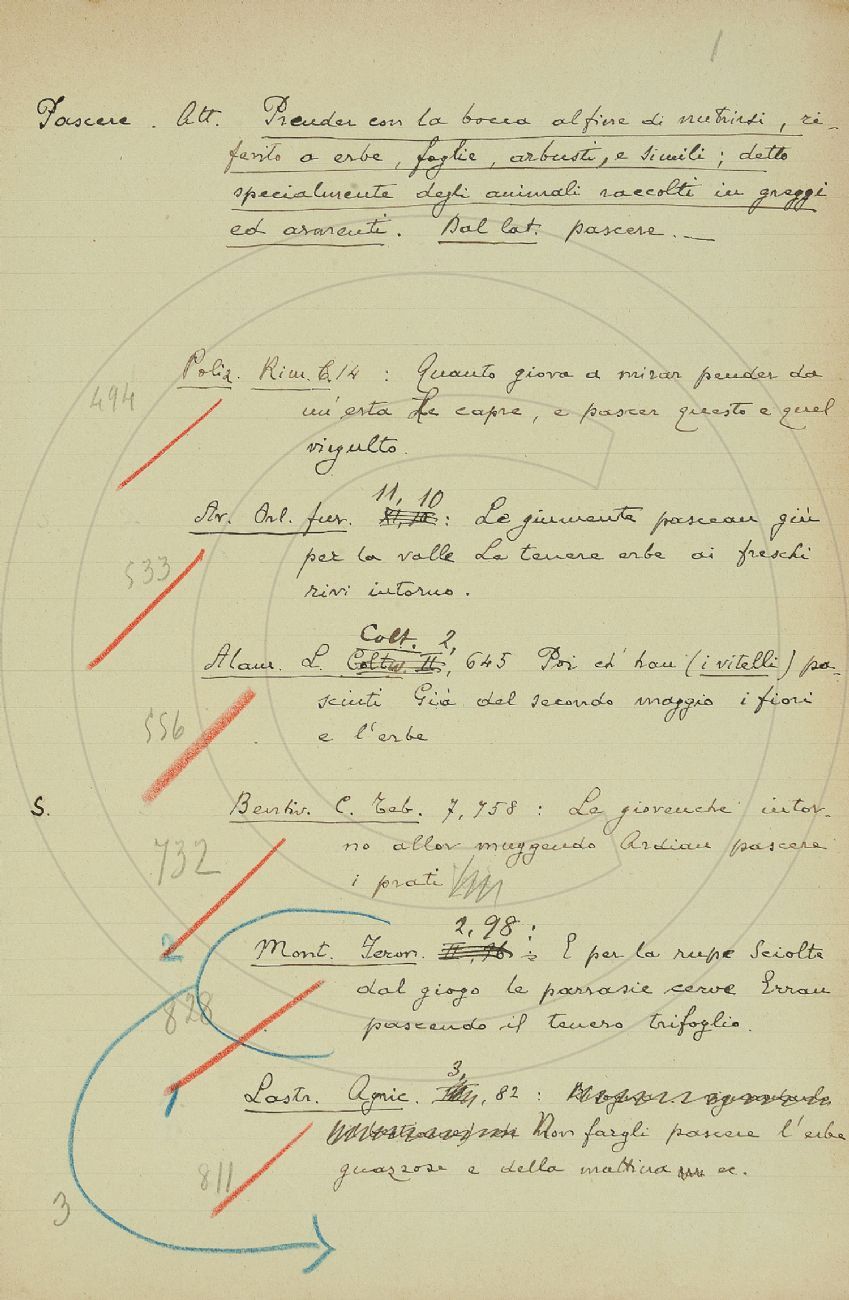 1
Pascere. Att. Prender con la bocca al fine di nutrirsi, ri-
ferito a erbe, foglie, arbusti, e simili; detto
specialmente degli animali raccolti in greggi
ed armenti. Dal lat. pascere. —
Poliz. Rim. C. 14 : Quanto giova a mirar pender da
494
un'erta Le capre, e pascer questo e quel
virgulto.
11, 10
Ar. Orl. fur. : Le giumente pascean giù
533
per la valle Le tenere erbe ai freschi
rivi intorno.
Colt. 2,
Alam. L. Coltiv. II, 645 Poi ch'han (i vitelli) pa-
sciuti Già del secondo maggio i fiori
556
e l'erbe
S. Bentiv. C. Teb. 7, 758 : Le giovenche intor-
no allor muggendo Ardian pascere
732
i prati
2, 98 :
Mont. Feron. : E per la rupe Sciolte
dal giogo le parrasie cerve Erran
828
pascendo il tenero trifoglio.
3,
Lastr. Agric. , 82 :
Non fargli pascere l'erbe
811
guazzose e della mattina ec.
3